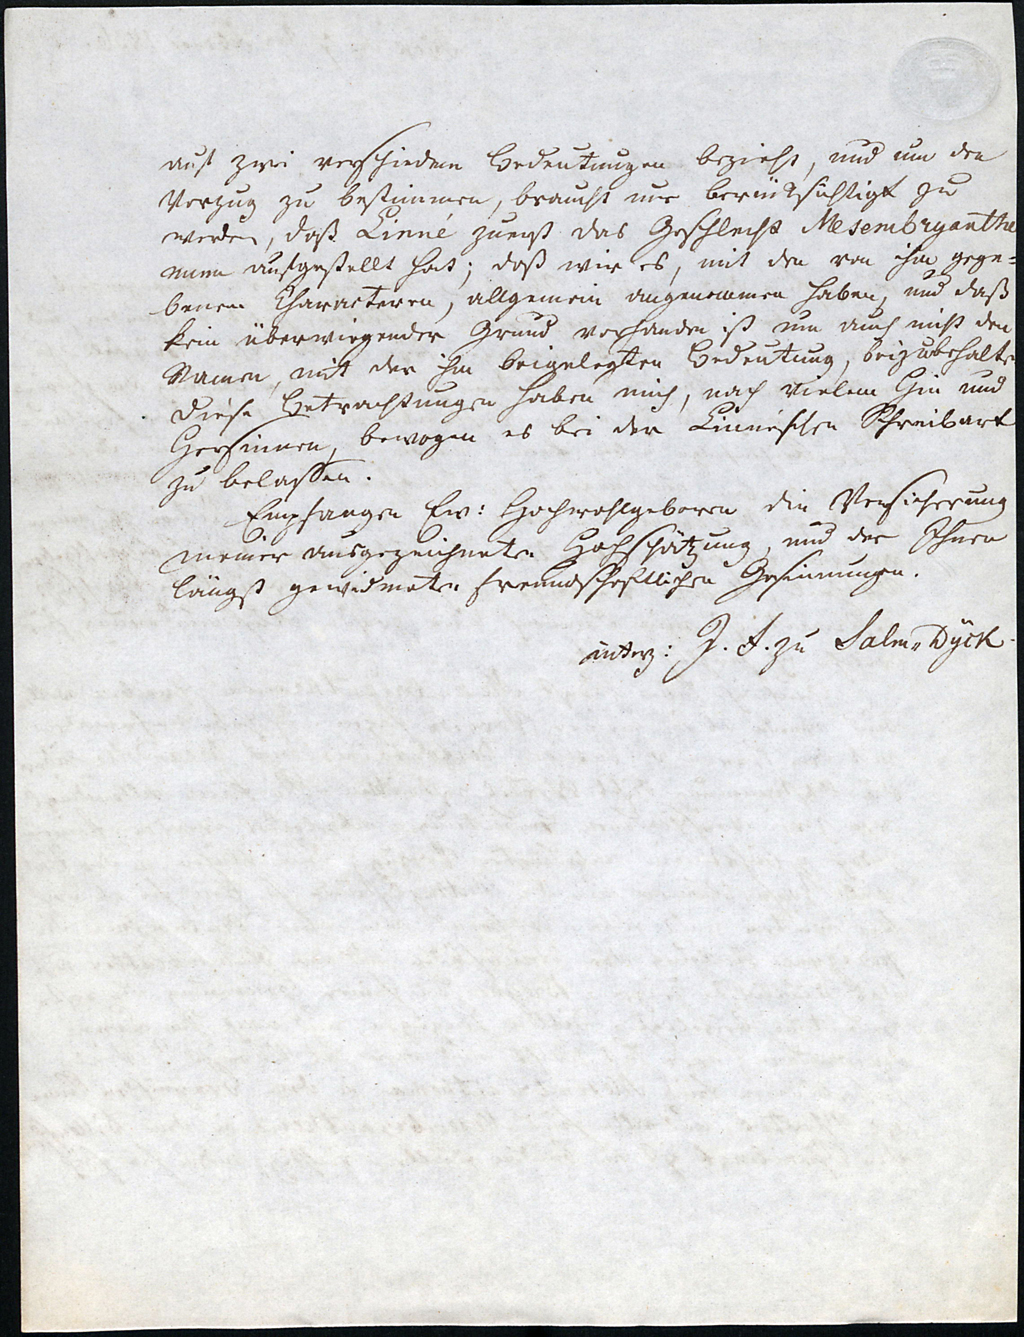 auf zwei verschiedene Bedeutungen bezieht, und um den
Vorzug zu bestimmen, braucht nur berücksichtigt zu
werden, daß Linné zuerst das Geschlecht Mesembryanthe
mum aufgestellt hat; daß wir es, mit den von ihm gege-
benen Characteren, allgemein angenommen haben, und daß
kein überwiegender Grund vorhanden ist um auch nicht den
Namen, mit der ihm beigelegten Bedeutung, beizubehalten
Diese Betrachtungen haben mich, nach vielem Hin und
Hersinnen, bewogen es bei der Linnéschen Schreibart
zu belassen.
Empfangen Ew: Hochwohlgeboren die Versicherung
meiner ausgezeichneten Hochschätzung, und der Ihnen
längst gewidmeten freundschaftlichen Gesinnungen.
unterz: J. F. zu Salm-Dÿck